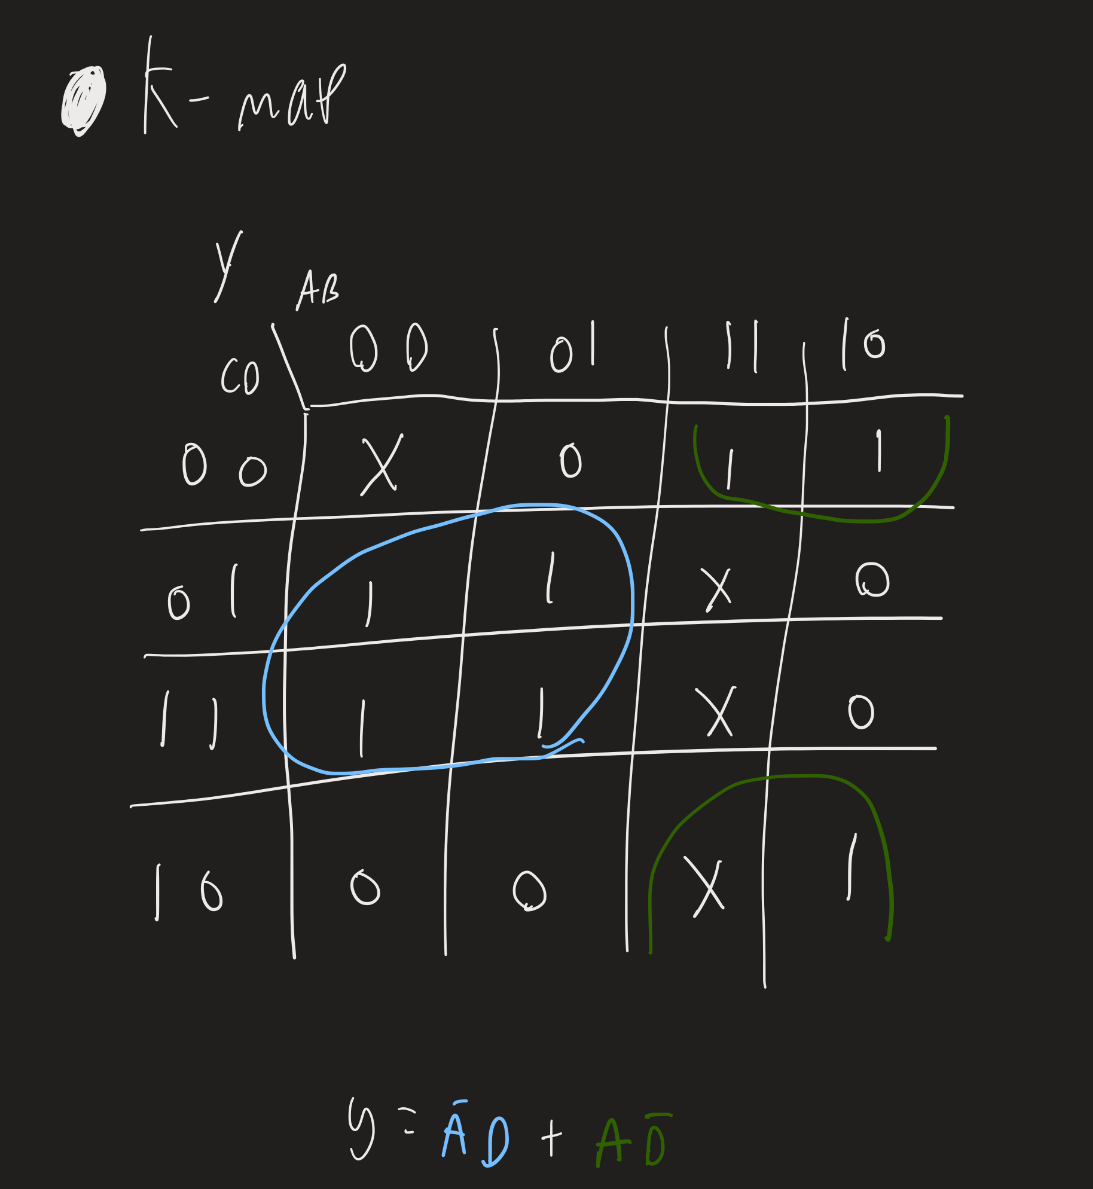 K-map
Y
AB
CD
00 01 11 10
00 X 0 1 1
01 1 1 X 0
11 1 1 X 0
10 0 0 X 1
y = ĀD + AD̄